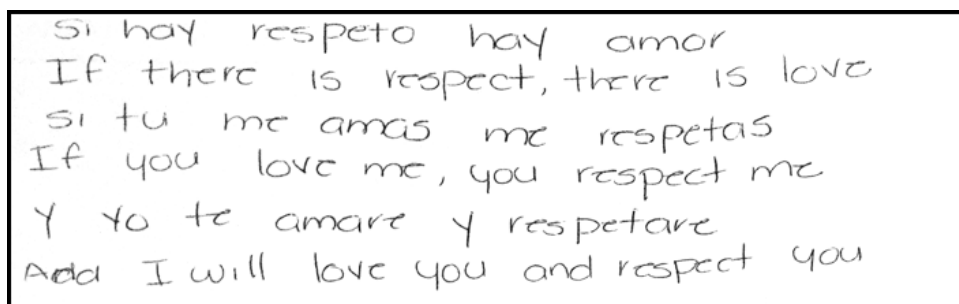 Si hay respeto hay amor
If there is respect, there is love
si tu me amas me respetas
If you love me, you respect me
Y Yo te amare y respetare
Add I will love you and respect you